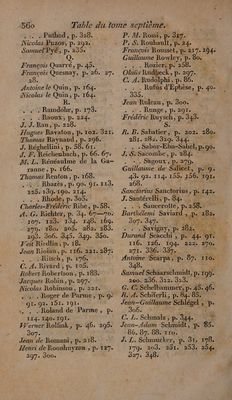 360 Table du tome septième.
. . . Puthod, p. 328.
Nicolas Puzos, p. 292.
Samuel Pyé, p. 235.
Q.
François Quarré, p. 45.
François Quesnay, p. 26. 27.
28.
Antoine le Quin, p. 164.
Nicolas le Quin, p. 164.
R.
. . . Ramsdofr, p. 173.
. . . Raoux, p. 224.
J. J. Rau, p. 228.
Hugues Ravaton, p. 102. 321.
Thomas Raynaud, p. 296.
J. Réghellini, p. 58. 61.
J. F. Reichenbach, p. 66. 67.
M. L. Renéaulme de la Garanne, p. 166.
Thomas Renton, p. 168.
. . . Rhazès, p. 90. 91. 113.
125. 139. 190. 214.
. . . Rhode, p. 305.
Charles-Frédéric Ribe, p. 58.
A. G. Richter, p. 34. 67—70.
107. 123. 134. 148. 162.
179. 180. 205. 282. 283.
293. 306. 345. 349. 350.
Veit Riedlin, p. 18.
Jean Riolan, p. 116. 221. 287.
. . . Ritsch, p. 176.
C. A. Rivard, p. 105.
Robert Robertson, p. 188.
Jacques Robin, p. 297.
Nicolas Robinson, p. 221.
. . . Roger de Parme, p. 9.
91. 92. 151. 191.
. . . Roland de Parme, p.
114. 140. 191.
Werner Rolfink, p. 46. 295.
307.
Jean de Romani, p. 218.
Henri de Roonhuyzen, p. 127.
297. 300.
P. M. Rossi, p. 327.
P. S. Rouhault, p. 24.
François Rousset, p. 217. 294.
Guillaume Rowley, p. 80.
. . . Rozier, p. 258.
Olaüs Rudbeck, p. 297.
C. A. Rudolphi, p. 86.
. . . Rufus d'Ephèse, p. 40.
335.
Jean Ruleau, p. 300.
. . . Runge, p. 291.
Frédéric Ruysch, p. 343.
S.
R. B. Sabatier, p. 202. 280.
281. 282. 329. 344.
. . . Sabur-Ebn-Sahel, p. 90.
J. S. Sacombe, p. 284.
. . . Sagoux, p. 279.
Guillaume de Salicet, p. 9.
45. 92. 114. 135. 156. 191.
268.
Sanctorius Sanctorius, p. 142.
J. Santorelli, p. 84.
. . . Saucerotte, p. 258.
Barthélemi Saviard, p. 182.
307. 347.
. . . Savigny, p. 262.
Durand Scacchi, p. 44. 91.
116. 126. 194. 222. 270.
271. 336. 337.
Antoine Scarpa, p. 87. 110.
348.
Samuel Schaarschmidt, p. 199.
200. 236. 312. 323.
G. C. Schelhammer, p. 45. 46.
R. A. Schiferli, p. 84. 85.
Jean-Guillaume Schlégel, p.
305.
C. L. Schmalz, p. 344.
Jean-Adam Schmidt, p. 85.
86. 87. 88. 110.
J. L. Schmucker, p. 31. 178.
179. 203. 251. 253. 254.
327. 348.